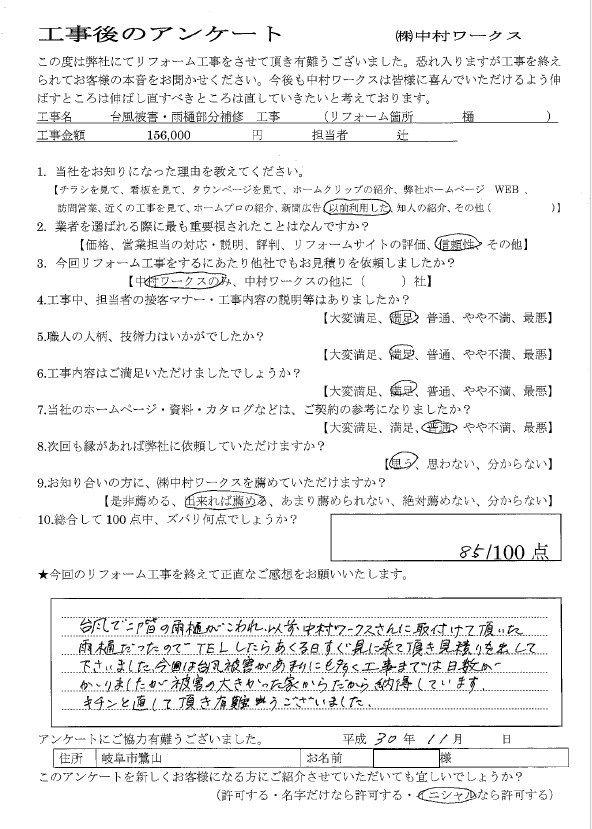 工事後のアンケート　㈱中村ワークス
この度は弊社にてリフォーム工事をさせて頂き有難うございました。恐れ入りますが工事を終え
られてお客様の本音をお聞かせください。今後も中村ワークスは皆様に喜んでいただけるよう伸
ばすところは伸ばし直すべきところは直していきたいと考えております。
工事名　台風被害・雨樋部分補修　工事　（リフォーム箇所　樋　）
工事金額　156,000　円　担当者　辻
1. 当社をお知りになった理由を教えてください。
【チラシを見て、看板を見て、タウンページを見て、ホームクリップの紹介、弊社ホームページ　WEB 、
訪問営業、近くの工事を見て、ホームプロの紹介、新聞広告、以前利用した、知人の紹介、その他（　）】
2. 業者を選ばれる際に最も重要視されたことはなんですか？
【価格、営業担当の対応・説明、評判、リフォームサイトの評価、信頼性、その他】
3. 今回リフォーム工事をするにあたり他社でもお見積りを依頼しましたか？
【中村ワークスのみ、中村ワークスの他に（　）社】
4.工事中、担当者の接客マナー・工事内容の説明等はありましたか？
【大変満足、満足、普通、やや不満、最悪】
5.職人の人柄、技術力はいかがでしたか？
【大変満足、満足、普通、やや不満、最悪】
6.工事内容はご満足いただけましたでしょうか？
【大変満足、満足、普通、やや不満、最悪】
7.当社のホームページ・資料・カタログなどは、ご契約の参考になりましたか？
【大変満足、満足、普通、やや不満、最悪】
8.次回も縁があれば弊社に依頼していただけますか？
【思う、思わない、分からない】
9.お知り合いの方に、㈱中村ワークスを薦めていただけますか？
【是非薦める、出来れば薦める、あまり薦められない、絶対薦めない、分からない】
10.総合して 100 点中、ズバリ何点でしょうか？
85/100 点
★今回のリフォーム工事を終えて正直なご感想をお願いいたします。
台風で二階の雨樋がこわれ、以前中村ワークスさんに取付けて頂いた
雨樋だったので TELしたらあくる日すぐ見に来て頂き見積りを出して
下さいました。今回は台風被害があまりにも多く工事までは日数が
かゝりましたが被害の大きかった家からだから納得しています。
キチンと直して頂き有難うございました。
アンケートにご協力有難うございました。　平成 30 年 11 月　日
住所　岐阜市鷺山　お名前　様
このアンケートを新しくお客様になる方にご紹介させていただいても宜しいでしょうか？
（許可する・名字だけなら許可する・イニシャルなら許可する）